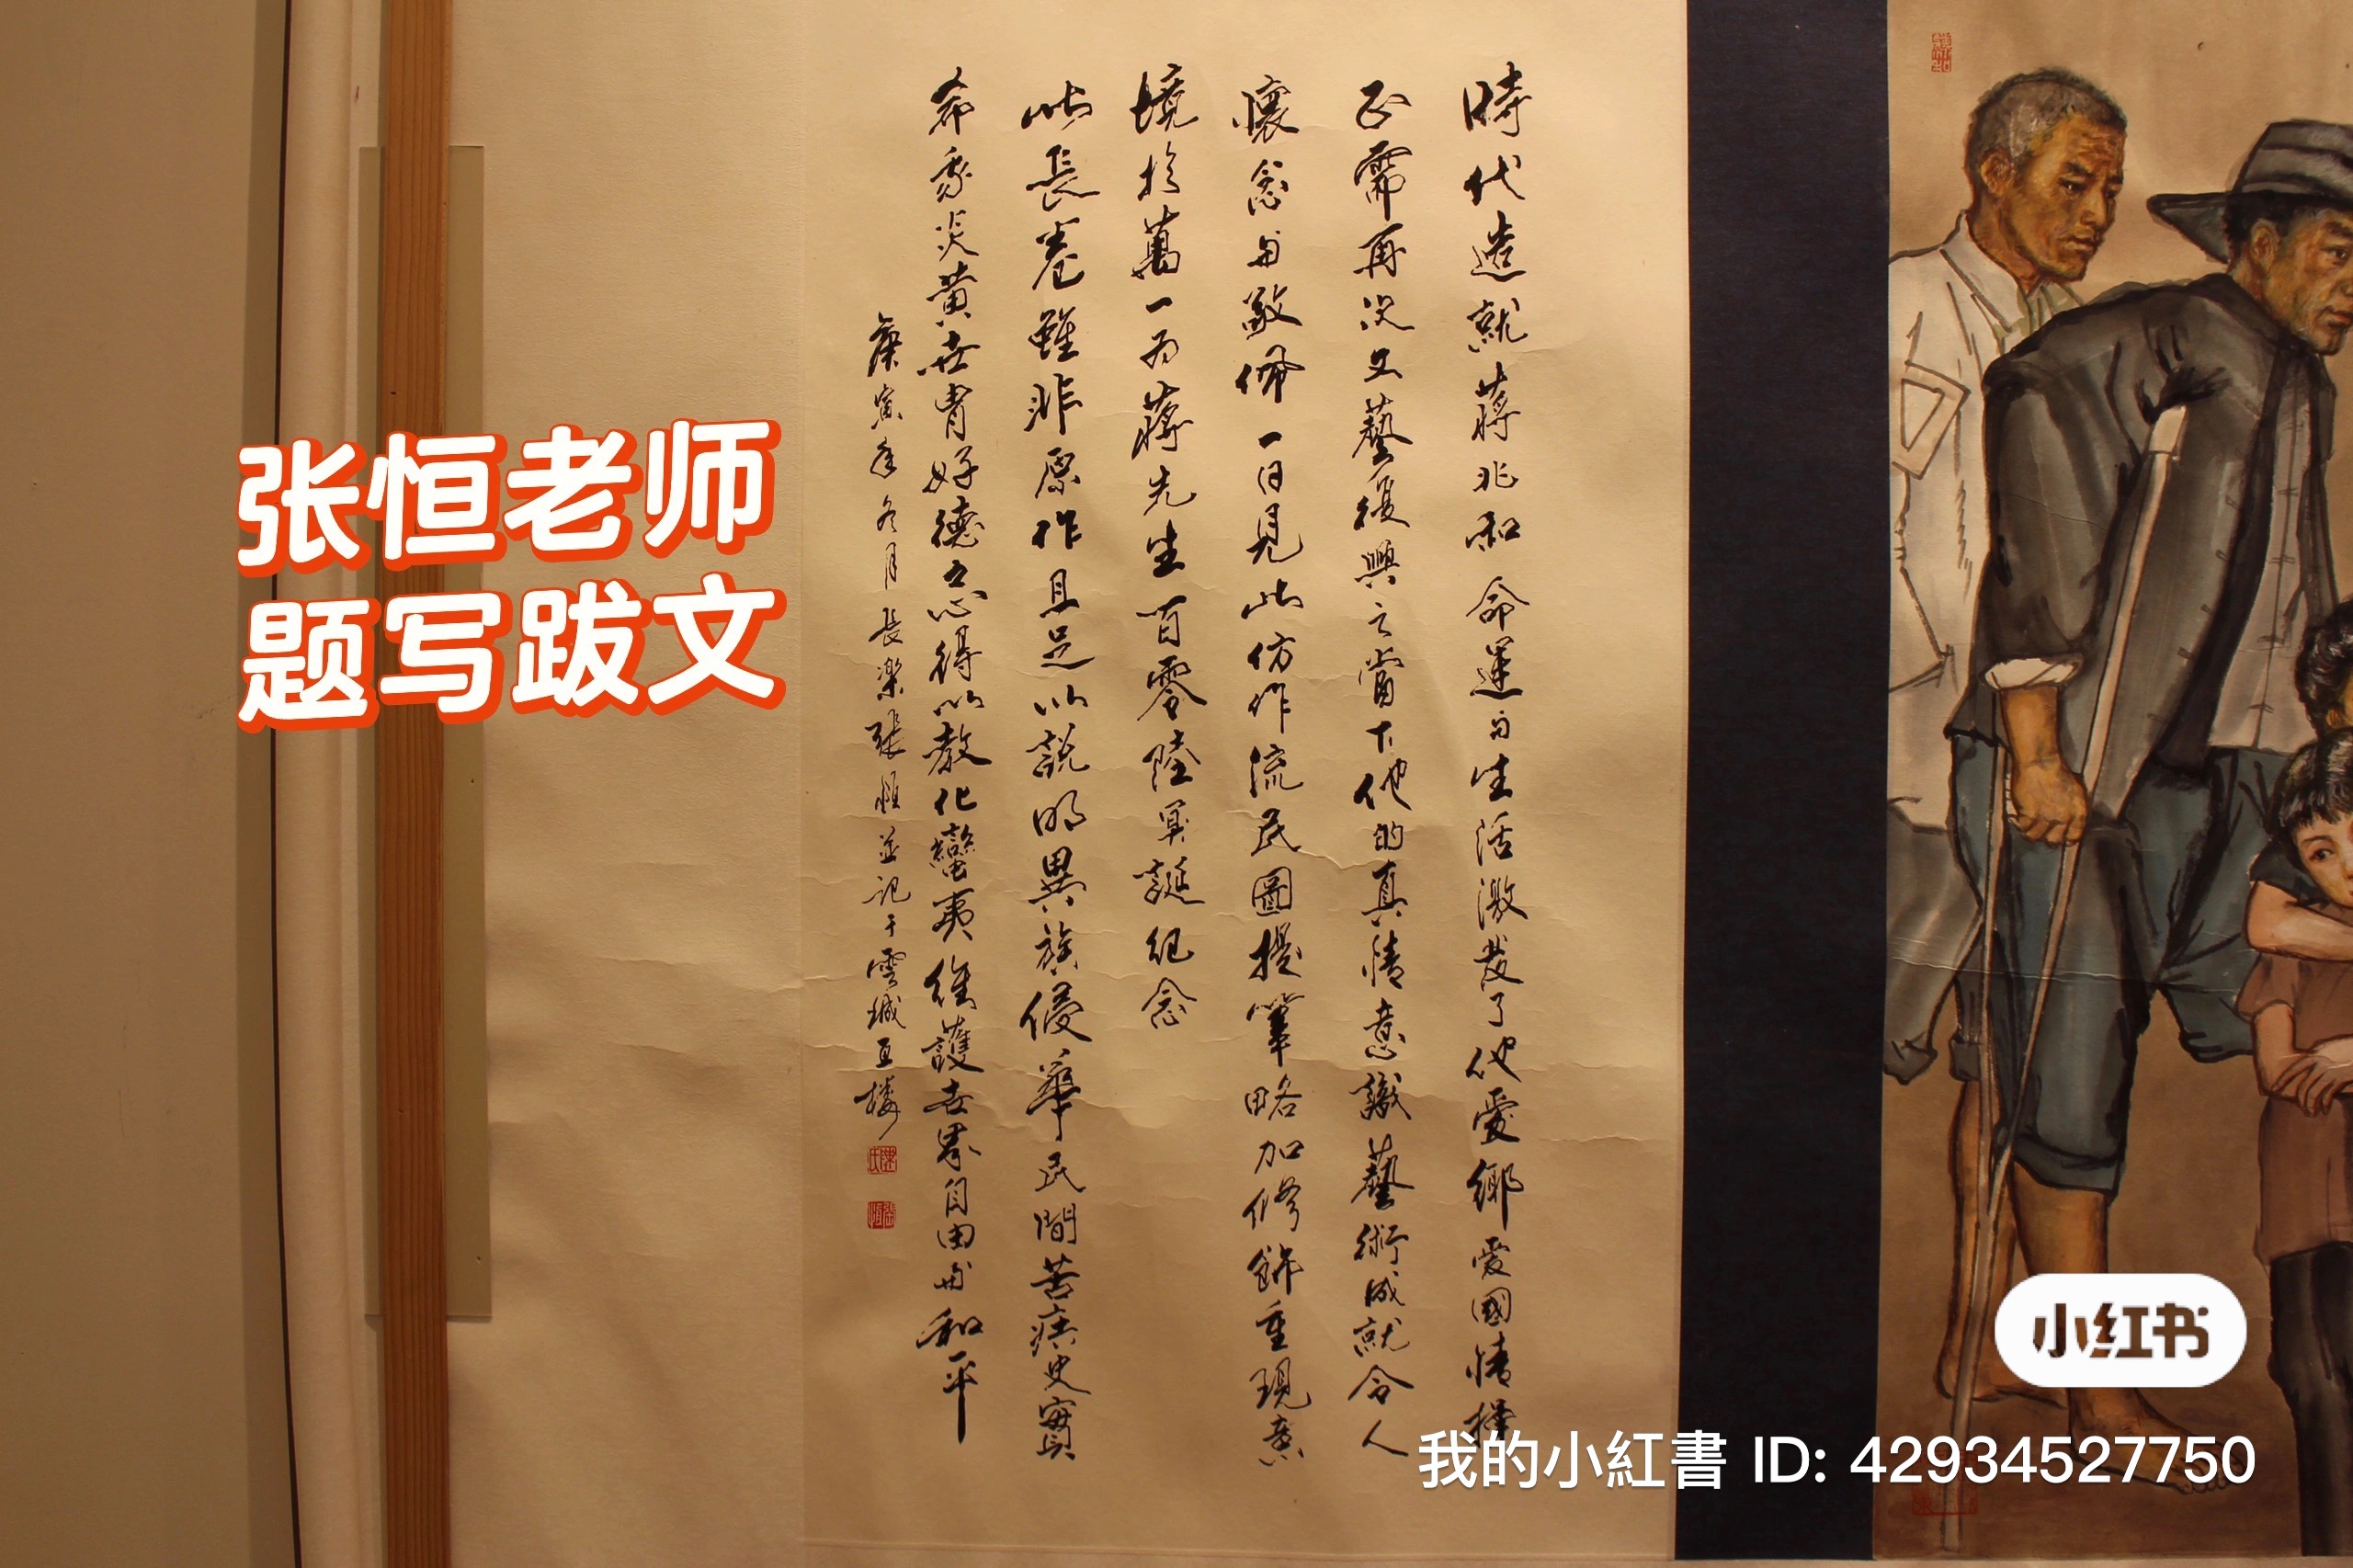 時代造就蔣兆和命運與生活激發了他愛鄉愛國情操
正需再次文藝復興之當下他的真情意識藝術成就令人
懷念與敬佩一日見此仿作流民圖擬筆略加修飾重現意
境於萬一為蔣先生百零陸冥誕紀念
此長卷雖非原作且足以說明異族侵華民間苦痛史實
希我炎黃世胄好德之心得以教化蠻夷維護世界自由與和平
庚寅年冬月長樂張恒並記于雲城亙樓
张恒老师
题写跋文
小红书
我的小紅書 ID: 42934527750